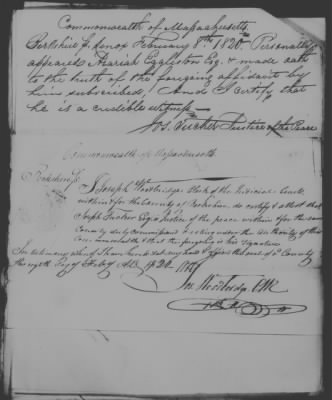 Commonwealth of Massachusetts
Berkshire ss Lenox February 8th 1820. Personally
appeared Azariah Eggleston Esq. & made oath
to the truth of the forgoing affidavit by
him subscribed, And I certify that
he is a credible witness —
Jos. Tucker Justice of the Peace
Commonwealth of Massachusetts
Berkshire ss
I Joseph Woodbridge Clerk of the Judicial Courts
within & for the County of Berkshire, do certify & attest that
Joseph Tucker Esq is Justice of the peace within & for the same
County duly commissioned & acting under the Authority of this
Commonwealth & that the forgoing is his signature
In testimony whereof I have hereunto set my hand & affixed the seal of sd County
this eighth Day of Feby AD 1820
Jos Woodbridge Clk